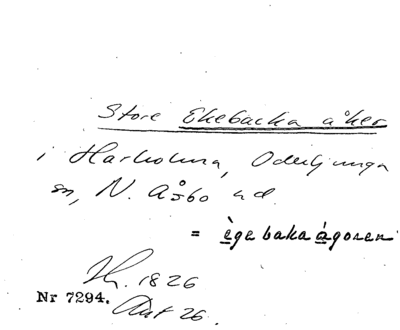 Store Ekebacka åker
i Harholma, Oderljunga
sn, N. Åsbo hd.
= ègebakaágoren
1826
Nr 7294. Akt 26.